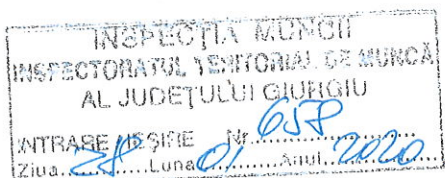 INSPECȚIA MUNCII
INSPECTORATUL TERITORIAL DE MUNCĂ
AL JUDEȚULUI GIURGIU
INTRARE/IEȘIRE Nr. 658
Ziua 28 Luna 01 Anul 2020